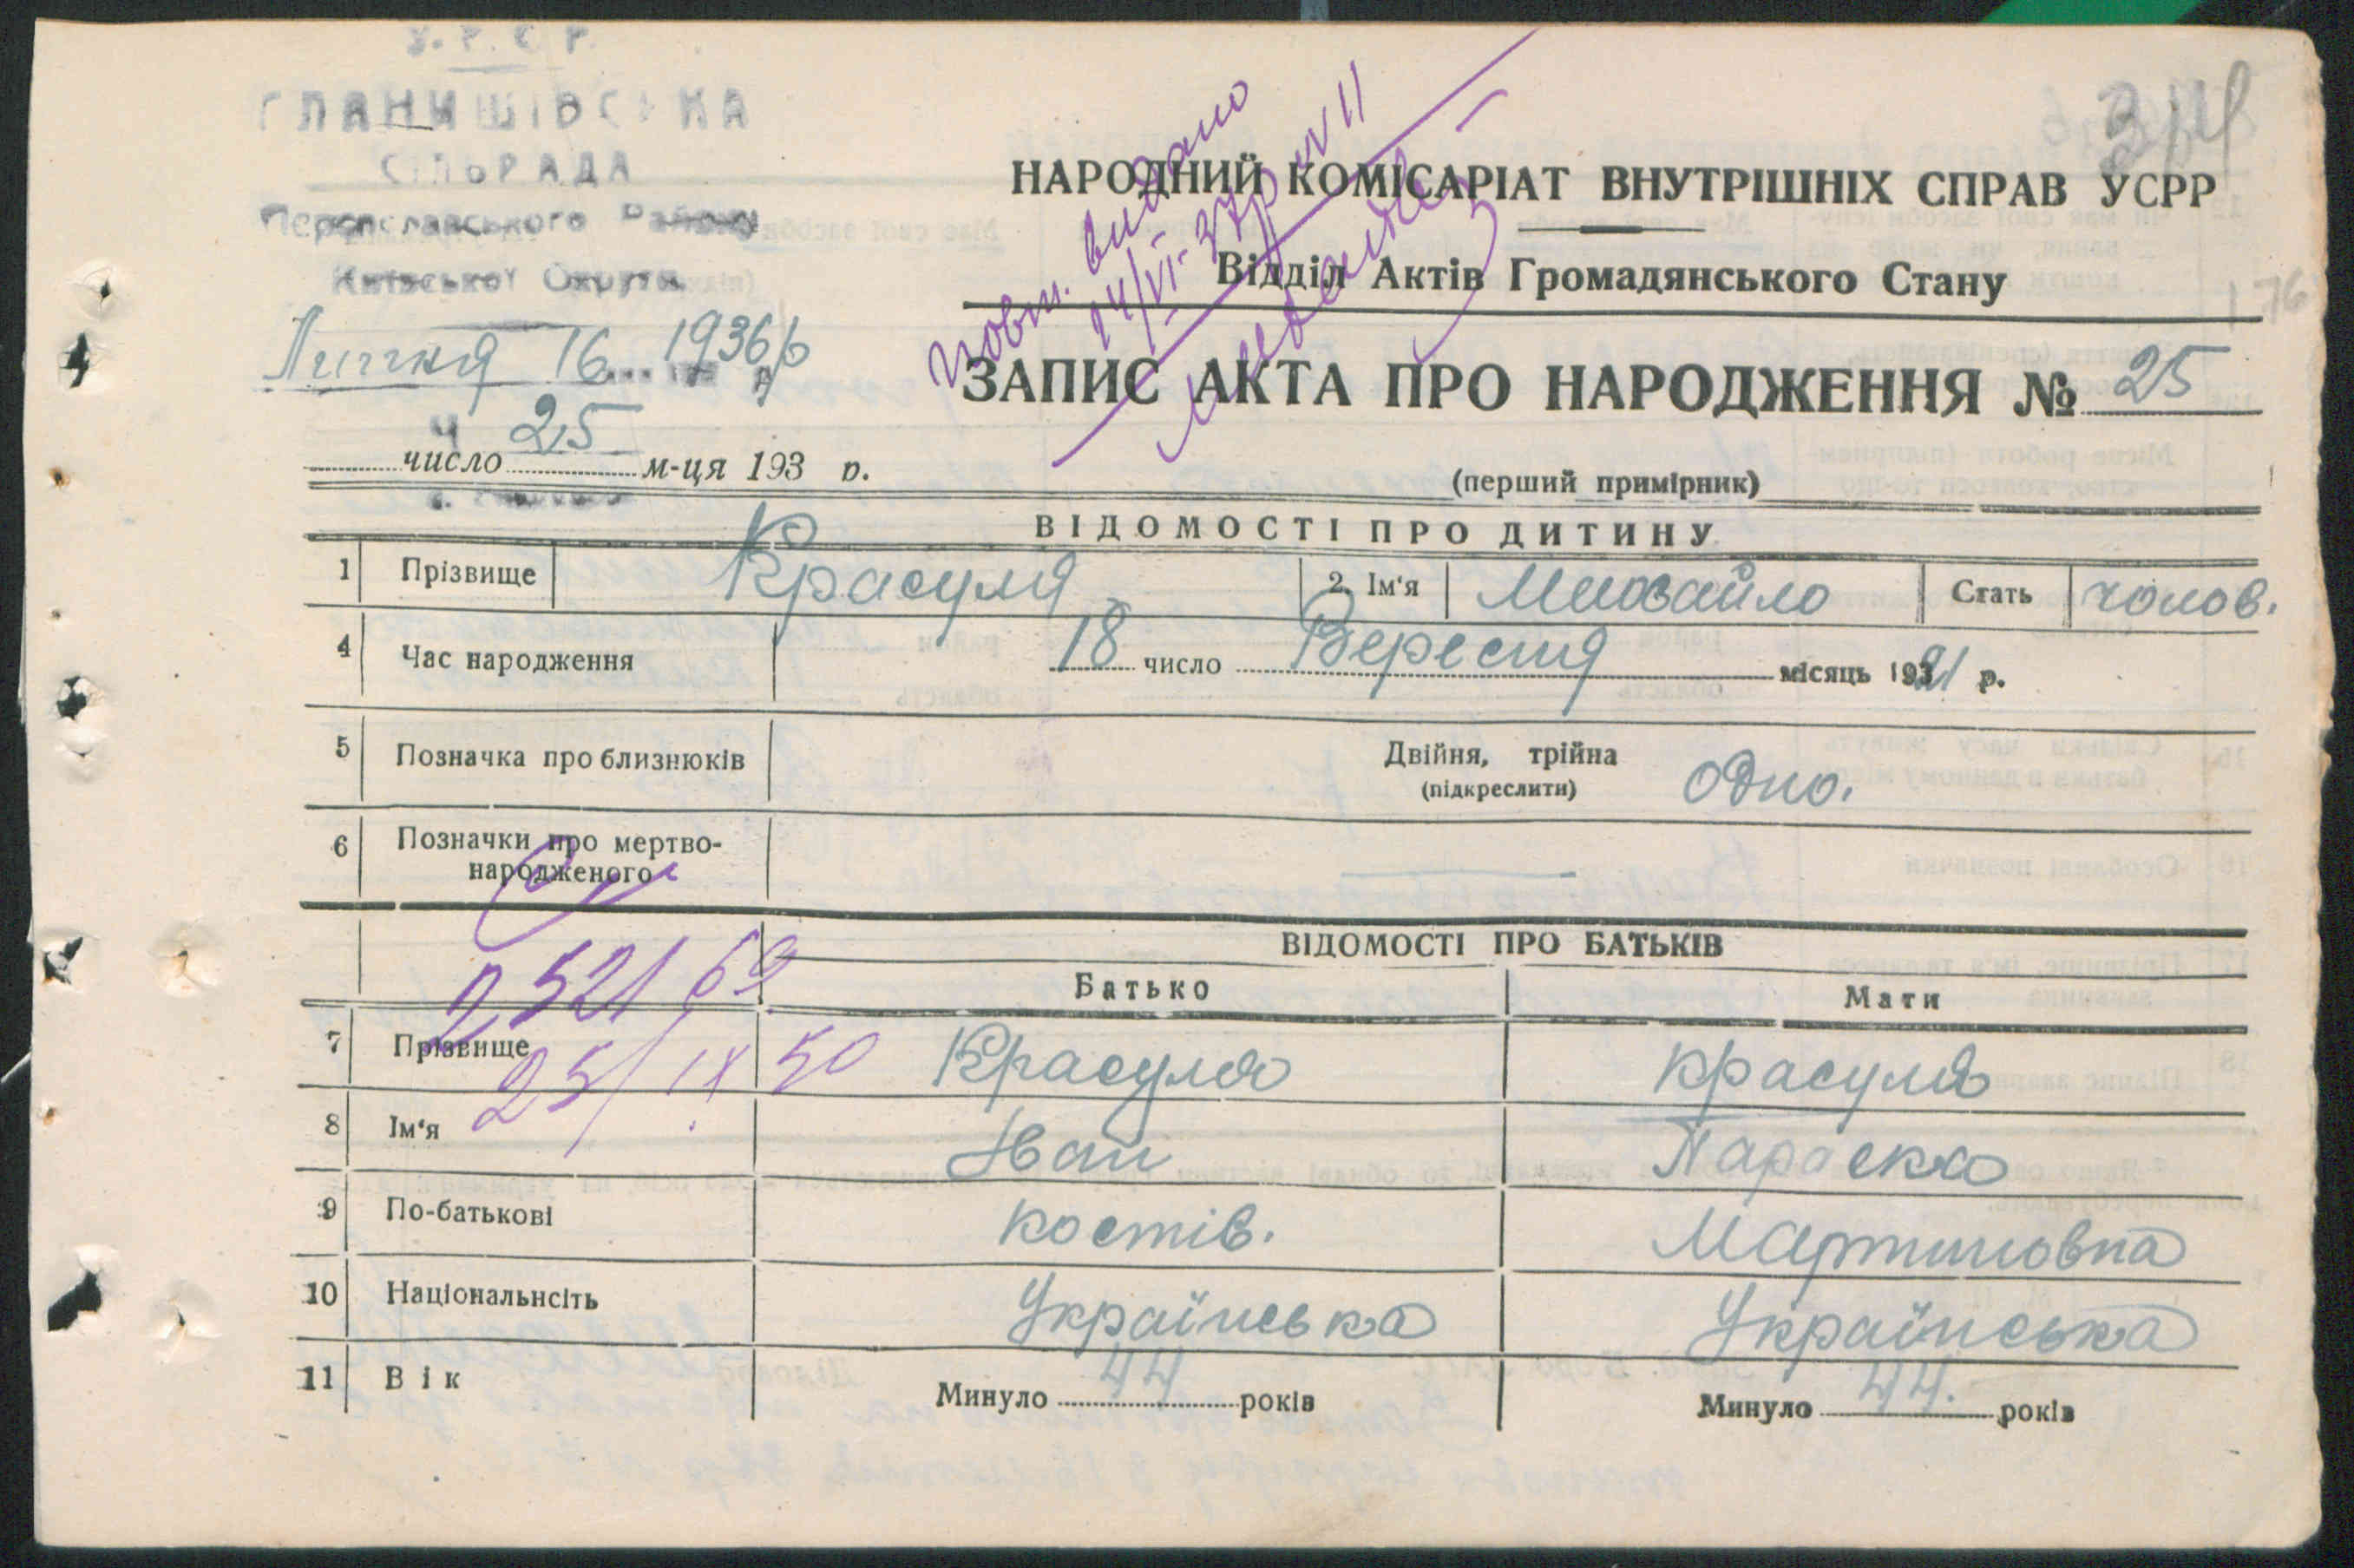 У.Р.С.Р.
ГЛАНИШІВСЬКА
СІЛЬРАДА
Переяславського Району
Київської Округи
16 1936 р
Ч 25
число м-ця 193 р.
повт. видано
14/VI-37р № 11
314
НАРОДНИЙ КОМІСАРІАТ ВНУТРІШНІХ СПРАВ УСРР
Відділ Актів Громадянського Стану
176
ЗАПИС АКТА ПРО НАРОДЖЕННЯ № 25
(перший примірник)
ВІДОМОСТІ ПРО ДИТИНУ
1 Прізвище Красуля 2. Ім'я Михайло Стать чолов.
4 Час народження 18 число Вересня місяць 1921 р.
5 Позначка про близнюків Двійня, трійна
(підкреслити) одно.
6 Позначки про мертво-
народженого
ВІДОМОСТІ ПРО БАТЬКІВ
Батько Мати
7 Прізвище Красуля Красуля
25/IX 50
8 Ім'я Іван Параска
9 По-батькові Костів. Мартиновна
10 Національнсіть Українська Українська
11 Вік Минуло 44 років Минуло 44. років